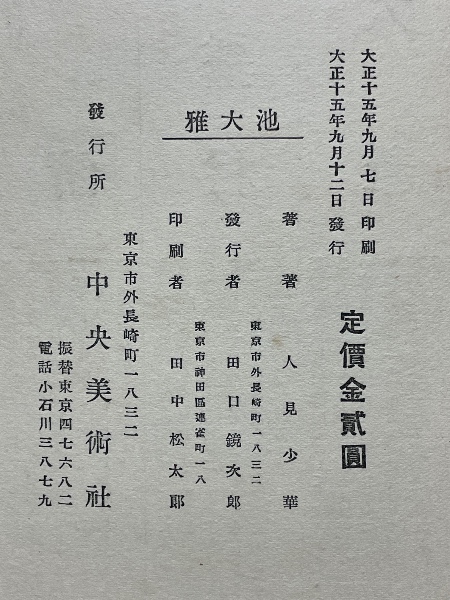 大正十五年九月七日印刷
大正十五年九月十二日發行
定價金貳圓
池大雅
著者 人見少華
東京市外長崎町一八三二
發行者 田口鏡次郎
東京市神田區連雀町一八
印刷者 田中松太郎
東京市外長崎町一八三二
發行所 中央美術社
振替東京四七六八二
電話小石川三八七九